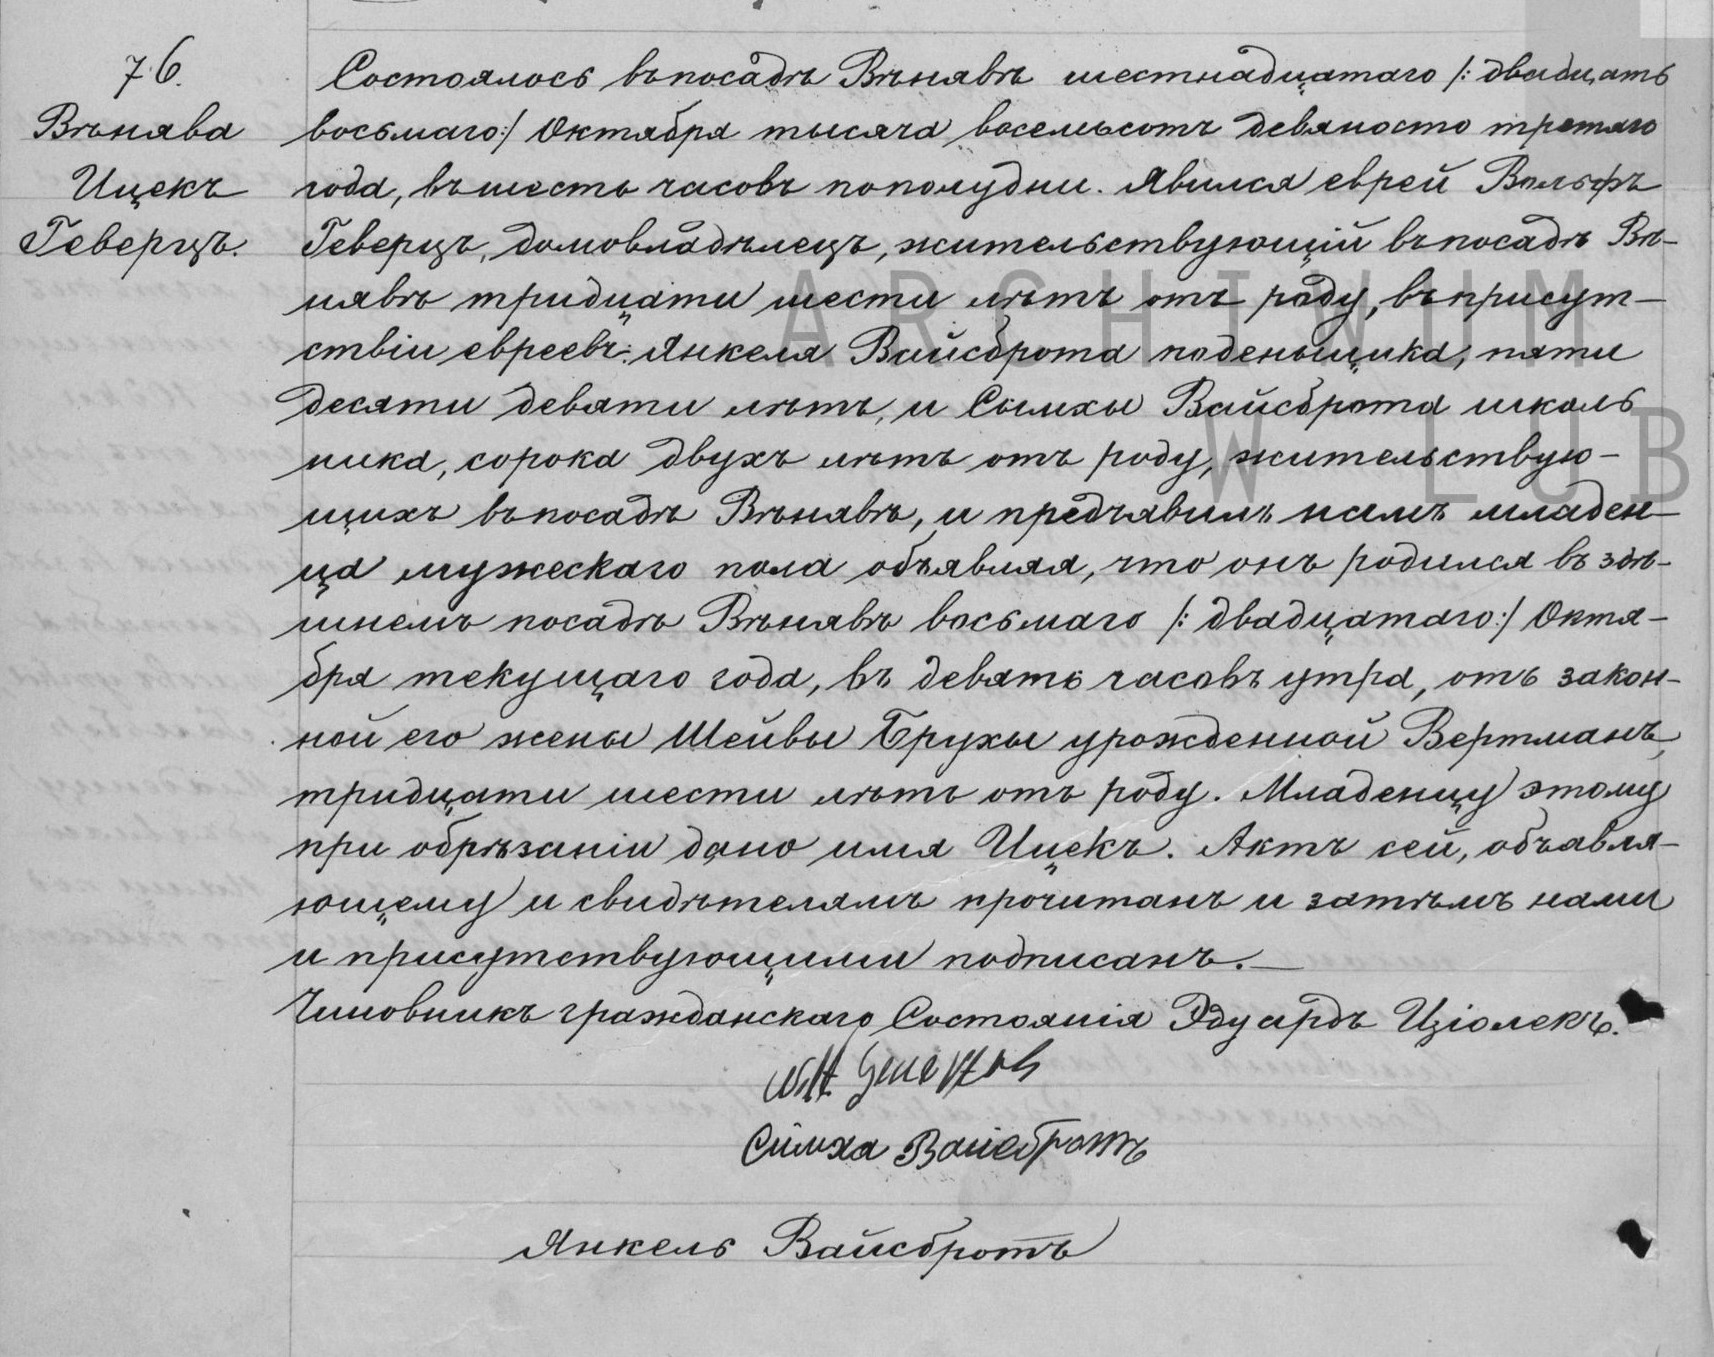 76.
Вѣнява
Ицекъ
Геверцъ.
Состоялось въ посадѣ Вѣнявѣ шестнадцатаго /: двадцать
восьмаго :/ Октября тысяча восемьсотъ девяносто третяго
года, въ шесть часовъ пополудни. Явился еврей Вольфъ
Геверцъ, домовладѣлецъ, жительствующій въ посадѣ Вѣ-
нявѣ тридцати шести лѣтъ отъ роду, въ присут-
ствіи евреевъ: Янкеля Вайсброта поденьщика, пяти
десяти девяти лѣтъ, и Сымхи Вайсброта школь
ника, сорока двухъ лѣтъ отъ роду, жительствую-
щихъ въ посадѣ Вѣнявѣ, и предъявилъ намъ младен-
ца мужескаго пола объявляя, что онъ родился въ здѣ-
шнемъ посадѣ Вѣнявѣ восьмаго /: двадцатаго :/ Октя-
бря текущаго года, въ девять часовъ утра, отъ закон-
ной его жены Шейвы Брухи урожденной Вертманъ,
тридцати шести лѣтъ отъ роду. Младенцу этому
при обрѣзаніи дано имя Ицекъ. Актъ сей, объявля-
ющему и свидѣтелямъ прочитанъ и затѣмъ нами
и присутствующими подписанъ.—
Чиновникъ гражданскаго Состоянія Эдуардъ Ціолекъ.
Симха Вайсбротъ
Янкель Вайсбротъ
ARCHIWUM
W LUB